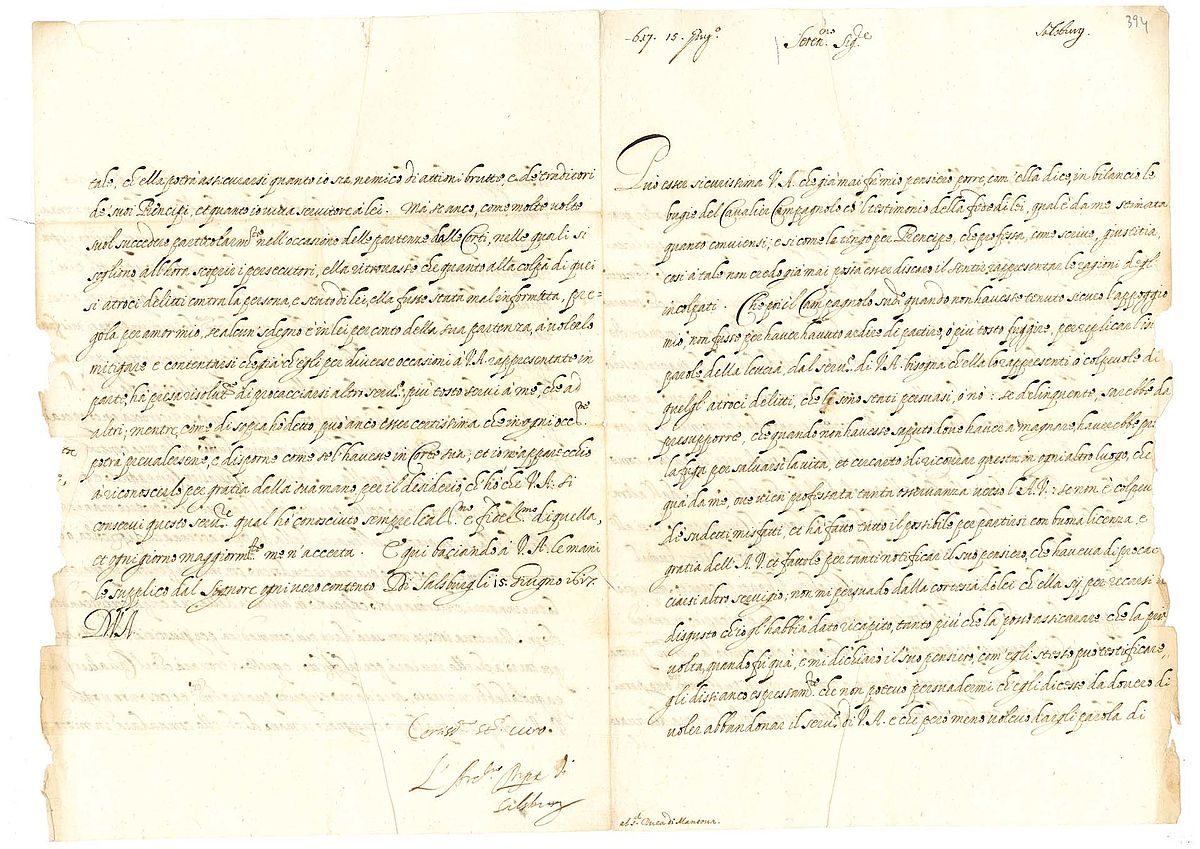 394
617. 15. Giug.º Seren.mo Sig.re Salsburg.
Può esser sicurissima V.A. che già mai fù mio pensiero, porre, com'ella dice, in bilancio le
bugie del Cavalier Campagnolo co'l testimonio della fede di lei, qual'è da me stimata
quanto conviensi; e si come la tengo per Prencipe, che professa, come scrive, giustitia,
così à tale non credo già mai possa esser discaro il sentir rappresentar le ragioni degl'
incolpati. Che poi il Campagnolo sud.º quando non havesse tenuto sicuro l'appoggio
mio, non fusse per haver havuto ardire di partire, ò più tosto fuggire, per replicar l'in
parole della , dal serv.º di V.A. bisogna ch'ella lo rappresenti ò colpevole di
quelgl' atroci delitti, che li sono stati persuasi, ò no: se delinquente, sarebbe da
presupporre, che quando non havesse saputo dove havere à magnare, haverebbe
la fuga per salvarsi la vita, et cercato di ricovrar questa in ogni altro luogo, che
quà da me, ove vien professata tanta osservanza verso l'A.V.: se non è colpevo
di sudetti misfatti, et hà fatto tutto il possibile per partirsi con buona licenza, e
gratia dell'A.V. et fattole per tanti notificar il suo pensiero, che haveva di procac
ciarsi altro servigio; non mi persuado dalla cortesia di lei ch'ella sij per recarsi à
disgusto ch'io gl'habbia dato ricapito, tanto più che la posso assicurare che la prima
volta, quando fù quà, e mi dichiarò il suo pensiero, com'egli stesso può testificare,
gli dissi anco espressam.te che non potevo persuadermi ch'egli dicesse da dovero di
voler abbandonar il serv.º di V.A. e che però meno volevo dargli parola di
al S.r Duca di Mantova.
tale, ch'ella potrà assicurarsi quanto io sia nemico di attioni brutte, e de' traditori
de suoi Prencipi, et quanto io viva servitore à lei. Ma se anco, come molte volte
suol succedere particolarm.te nell'occasione delle partenze dalle Corti, nelle quali si
sogliono all'hora scoprir i persecutori, ella ritrovasse che quanto alla colpa di quei
sì atroci delitti contra la persona, e stato di lei, ella fusse stata mal informata, pre=
gola per amor mio, se alcun sdegno è in lei per conto della sua partenza, à volerlo
mitigare e contentarsi che già ch'egli per diverse occasioni à V.A. rappresentate in
parte, hà presa risolut.ne di procacciarsi altro serv.º, più tosto servi à me, che ad
altri; mentre, come di sopra hò detto, può anco esser certissima che in ogni occ.ne
potrà prevalersene, e disporne come se l'havesse in Corte sua; et io m'apparecchio
à riconoscerlo per gratia dalla sua mano per il desiderio, che hò che V.A. si
conservi questo serv.re qual hò conosciuto sempre leal.mo e fidel.mo di quella,
et ogni giorno maggiorm.te me n'accerta. E qui baciando à V.A. le mani
le supplico dal Signore ogni vero contento. Di Salsburg li 15. Giugno 1617.
D.V.A.
L' Arciv.º di
Salsburg